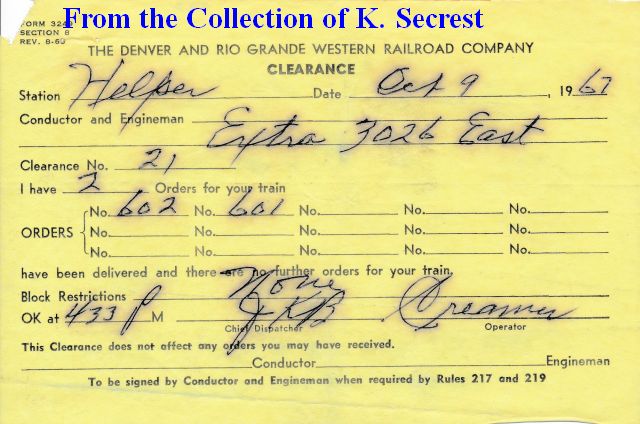 From the Collection of K. Secrest
FORM 3249
SECTION 8
REV. 8-60
THE DENVER AND RIO GRANDE WESTERN RAILROAD COMPANY
CLEARANCE
Station Helper Date Oct 9, 1967
Conductor and Engineman Extra 3026 East
Clearance No. 21
I have 2 Orders for your train
No. 602 No. 601 No. No. No.
ORDERS No. No. No. No. No.
No. No. No. No. No.
have been delivered and there are no further orders for your train.
Block Restrictions None
OK at 433 P M JKB Creamer
Chief Dispatcher Operator
This Clearance does not affect any orders you may have received.
Conductor Engineman
To be signed by Conductor and Engineman when required by Rules 217 and 219